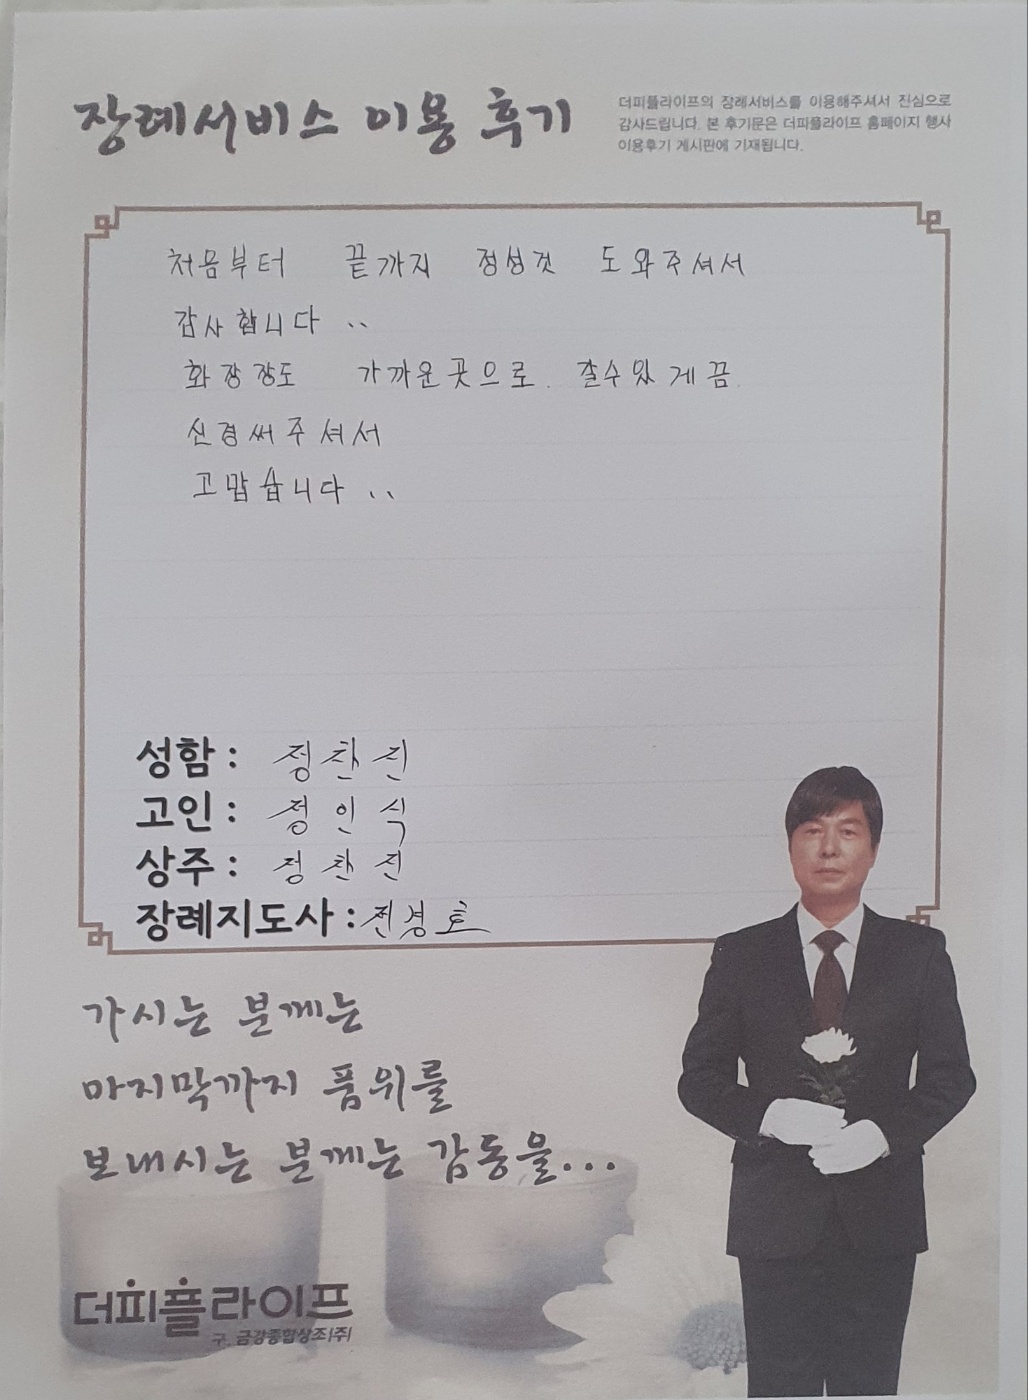 장례서비스 이용 후기
더피플라이프의 장례서비스를 이용해주셔서 진심으로
감사드립니다. 본 후기문은 더피플라이프 홈페이지 행사
이용후기 게시판에 기재됩니다.
처음부터 끝까지 정성것 도와주셔서
감사합니다 ..
화장장도 가까운곳으로. 갈수있게끔.
신경써주셔서
고맙습니다 ..
성함 : 정찬진
고인 : 정인식
상주 : 정찬진
장례지도사 : 전경호
가시는 분께는
마지막까지 품위를
보내시는 분께는 감동을...
더피플라이프
구. 금강종합상조(주)